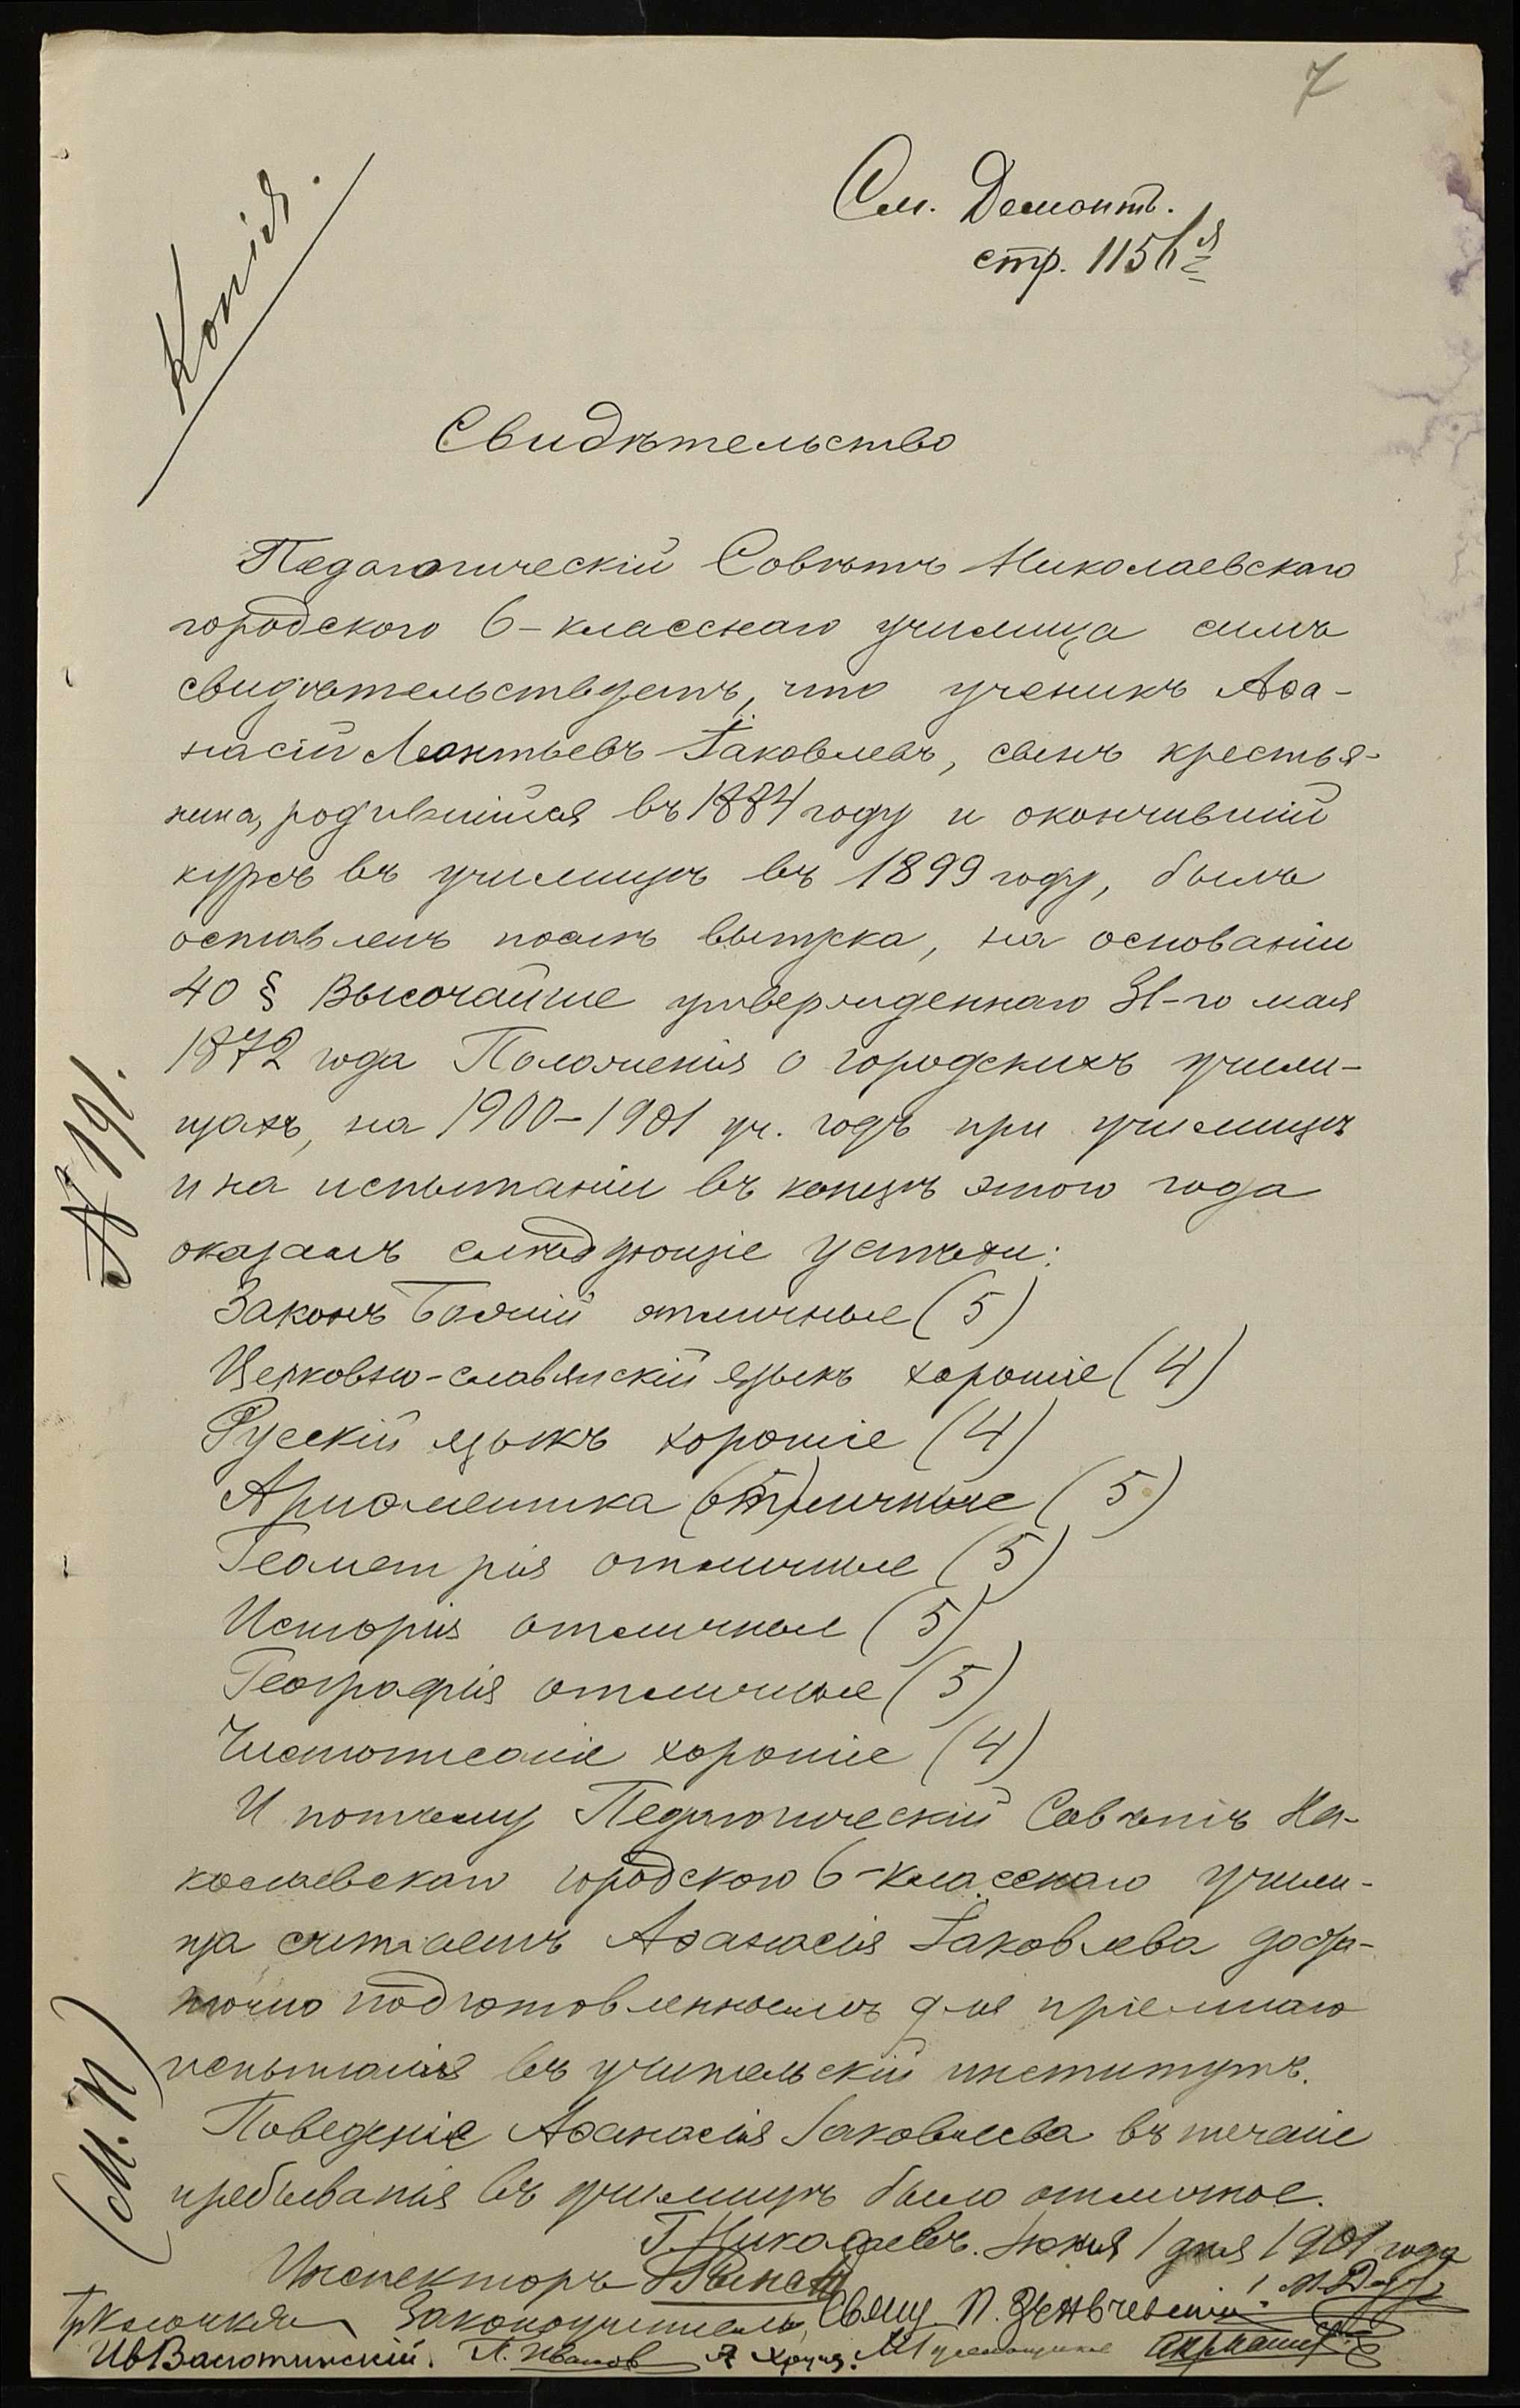 7
См. Демонт.
стр. 115
Копія.
Свидѣтельство
Педагогическій Совѣтъ Николаевскаго
городского 6-класснаго училища симъ
свидѣтельствуетъ, что ученикъ Аѳа-
насій Леонтьевъ Яковлевъ, сынъ крестья-
нина, родившійся въ 1884 году и окончившій
курсъ въ училищѣ въ 1899 году, былъ
оставленъ послѣ выпуска, на основаніи
40 § Высочайше утвержденнаго 31-го мая
1872 года Положенія о городскихъ учили-
щахъ, на 1900-1901 уч. годъ при училищѣ
и на испытаніи въ концѣ этого года
оказалъ слѣдующіе успѣхи:
Законъ Божій отличные (5)
Церковно-славянскій языкъ хорошіе (4)
Русскій языкъ хорошіе (4)
Ариѳметика отличные (5)
Геометрія отличные (5)
Исторія отличные (5)
Географія отличные (5)
Чистописаніе хорошіе (4)
И потому Педагогическій Совѣтъ Ни-
колаевскаго городского 6-класснаго учили-
ща считаетъ Аѳанасія Яковлева доста-
точно подготовленнымъ для пріемнаго
испытанія въ учительскій институтъ.
Поведеніе Аѳанасія Яковлева въ теченіе
пребыванія въ училищѣ было отличное.
Г. Николаевъ. Іюня 1 дня 1901 года
№ 191.
(М. П)
Инспекторъ
Законоучитель, Свящ. П.
Ив Васютинскій. П. Иванов